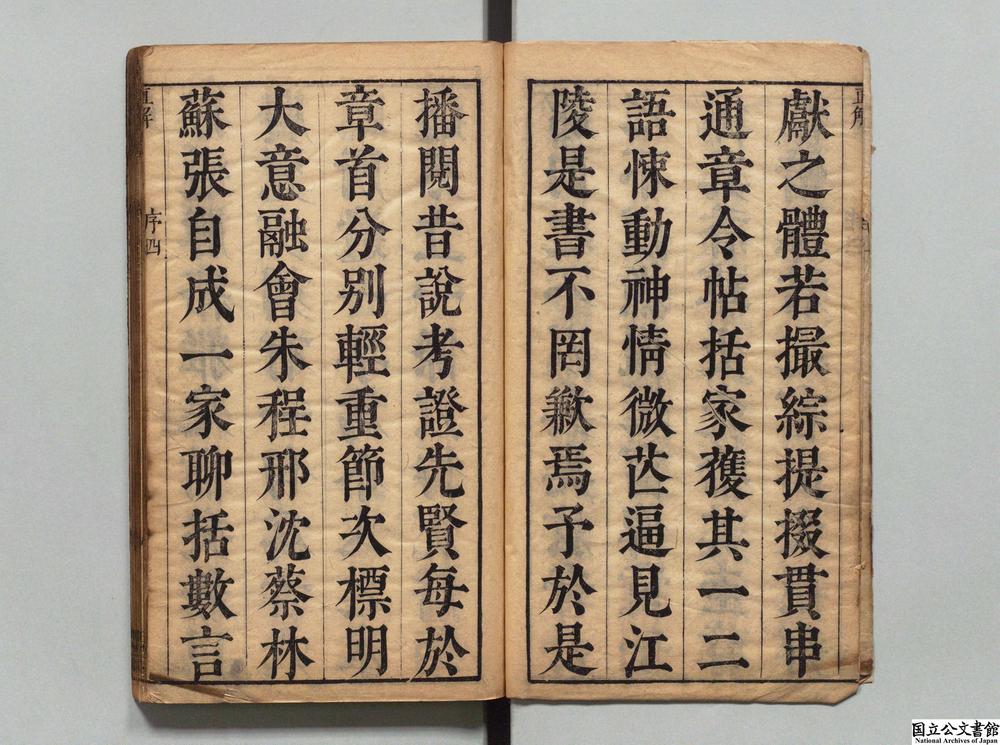 獻之體若撮綜提掇貫串
通章令帖括家獲其一二
語悚動神情微𦮼逼見江
陵是書不罔歉焉予於是
播閱昔說考證先賢每於
章首分別輕重節次標明
大意融會朱程邢沈蔡林
蘇張自成一家聊括數言
直解
序四
国立公文書館
National Archives of Japan